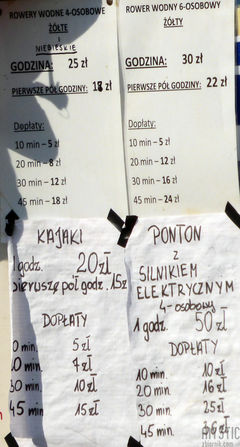 ROWERY WODNE 4-OSOBOWE
ŻÓŁTE
I
NIEBIESKIE
GODZINA: 25 zł
PIERWSZE PÓŁ GODZINY: 18 zł
Dopłaty:
10 min – 5 zł
20 min – 8 zł
30 min – 12 zł
45 min – 18 zł
ROWER WODNY 6-OSOBOWY
ŻÓŁTY
GODZINA: 30 zł
PIERWSZE PÓŁ GODZINY: 22 zł
Dopłaty:
10 min – 5 zł
20 min – 9 zł
30 min – 16 zł
45 min – 24 zł
KAJAKI
1 godz. 20zł
pierwsze pół godz. 15z
DOPŁATY
0 min 5 zł
0 min. 7 zł
30 min 10zł
45 min 15zł
PONTON
z
SILNIKIEM
ELEKTRYCZNYM
4-osobowy
1 godz. 50zł
DOPŁATY
10 min. 10zł
20 min 16zł
30 min 25zł
45 min 36zł